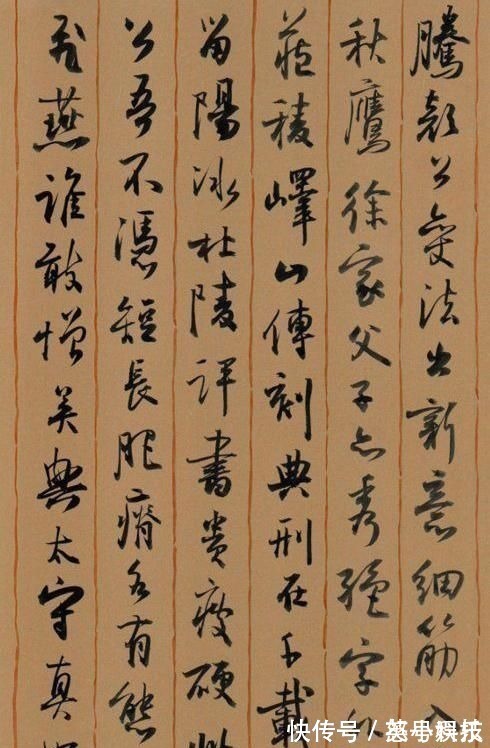 騰顏公變法出新意細筋入
秋鷹徐家父子亦秀絕字外
藏稜嶧山傳刻典刑在千載
留陽冰杜陵評書貴瘦硬此
公吾不憑短長肥瘠各有態
飛燕誰敢憎吳興太守真
快传号/